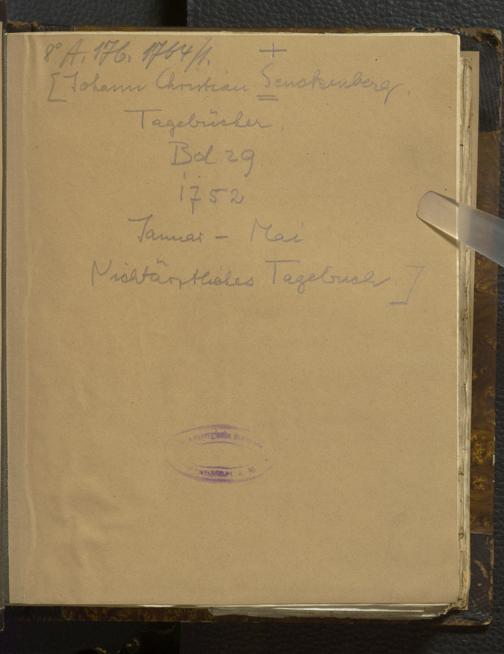 8° A. 176. 1764/1. +
[Johann Christian Senckenberg.
Tagebücher.
Bd 29
1752
Januar - Mai
Nichtärztliches Tagebuch.]